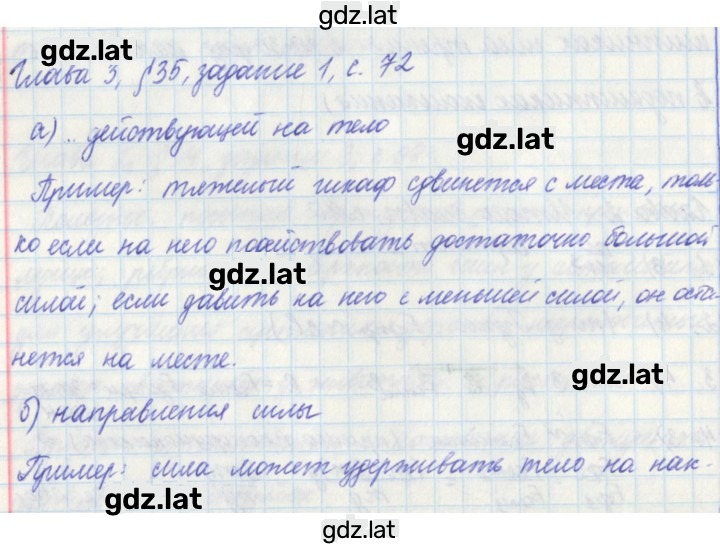 gdz.lat
gdz.lat
Глава 3, §35, задание 1, с. 72
а) .. действующей на тело
gdz.lat
Пример: тяжелый шкаф сдвинется с места, толь-
ко если на него подействовать достаточно большой
gdz.lat
силой; если давить на него с меньшей силой, он оста-
нется на месте.
gdz.lat
б) направления силы
Пример: сила может удерживать тело на нак-
gdz.lat
gdz.lat